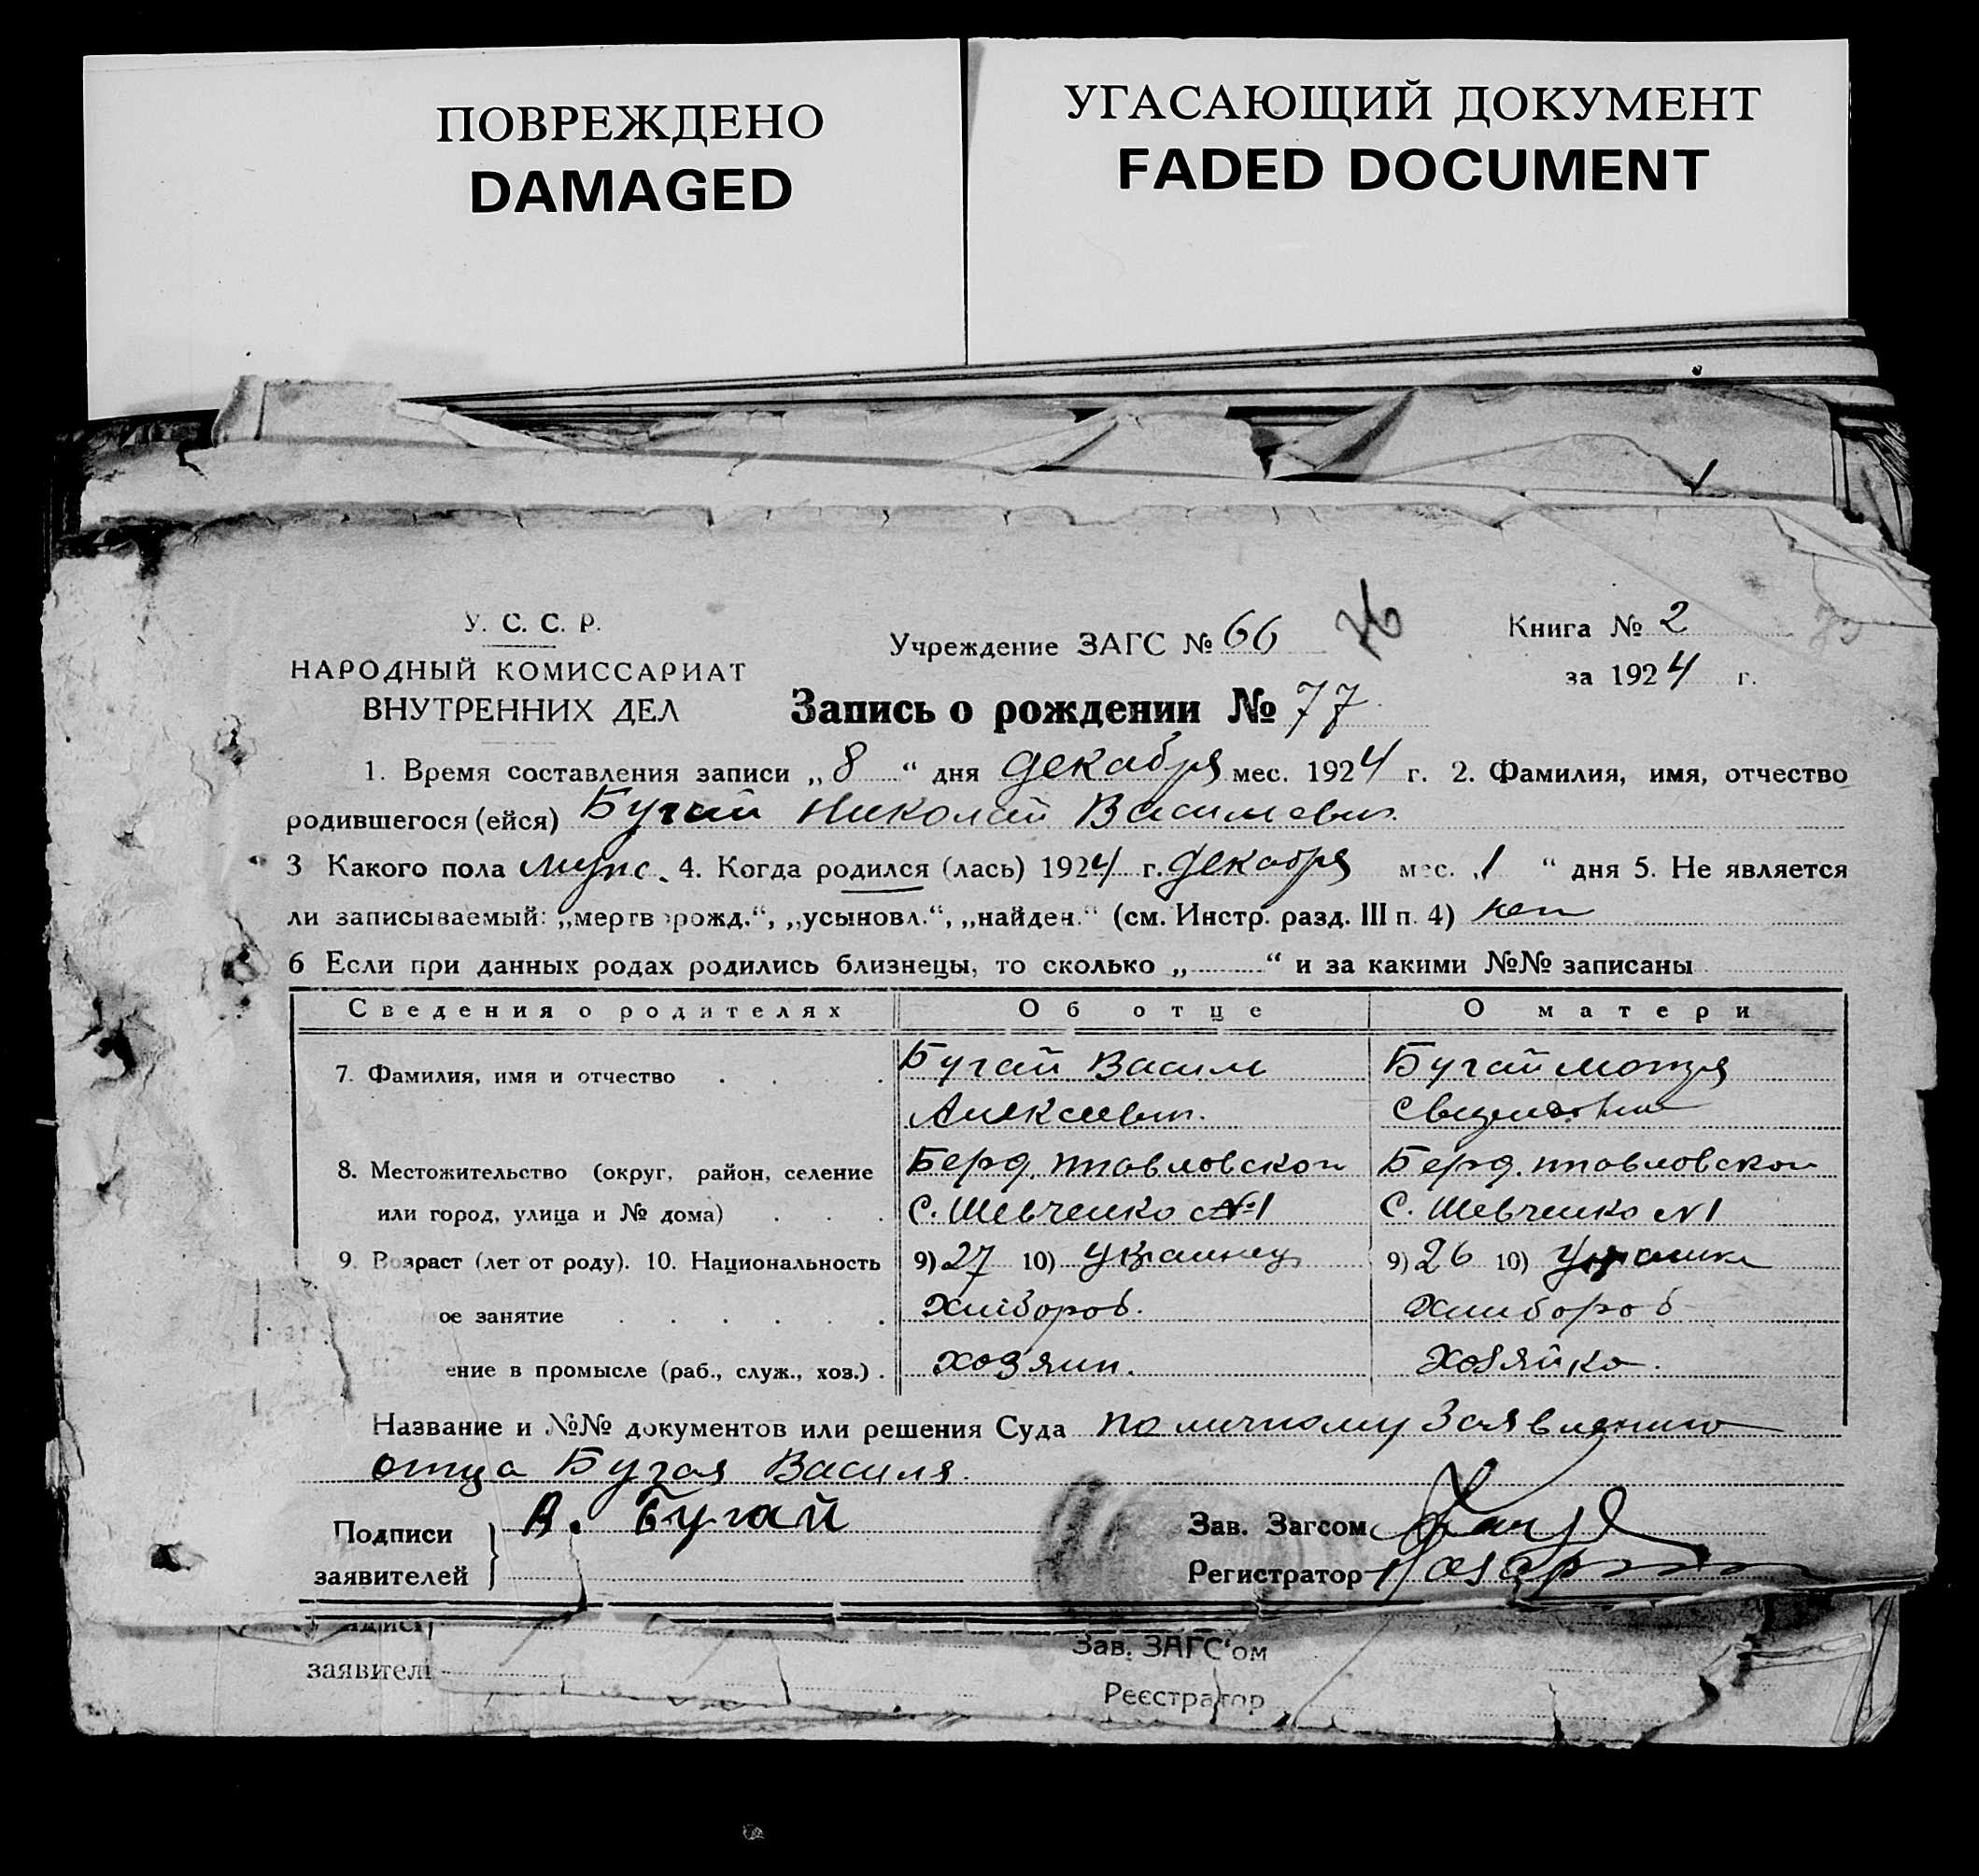 ПОВРЕЖДЕНО
DAMAGED
УГАСАЮЩИЙ ДОКУМЕНТ
FADED DOCUMENT
У. С. С. Р.
НАРОДНЫЙ КОМИССАРИАТ
ВНУТРЕННИХ ДЕЛ
Учреждение ЗАГС № 66 76
Книга № 2
за 1924 г.
Запись о рождении № 77
1. Время составления записи „8“ дня декабря мес. 1924 г. 2. Фамилия, имя, отчество
родившегося (ейся) Бугай Николай Васильевич
3 Какого пола мужс. 4. Когда родился (лась) 1924 г. декабря мес. „1“ дня 5. Не является
ли записываемый: „мертворожд.“, „усыновл.“, „найден.“ (см. Инстр. разд. III п. 4) нет
6 Если при данных родах родились близнецы, то сколько „ “ и за какими №№ записаны
Сведения о родителях Об отце О матери
7. Фамилия, имя и отчество Бугай Василь Бугай Мотря
Алексеевич.
8. Местожительство (округ, район, селение Берд. Павловской Берд. Павловской
или город, улица и № дома) С. Шевченко №1 С. Шевченко №1
9. Возраст (лет от роду). 10. Национальность 9) 27 10) Украинец 9) 26 10) Украинка
ое занятие Хлибороб. Хлибороб
ение в промысле (раб., служ., хоз.) хозяин. Хозяйка.
Название и №№ документов или решения Суда по личному заявлению
отца Бугая Василя.
Подписи В. Бугай Зав. Загсом
заявителей Регистратор
заявител
Зав. ЗАГС'ом
Реєстратор